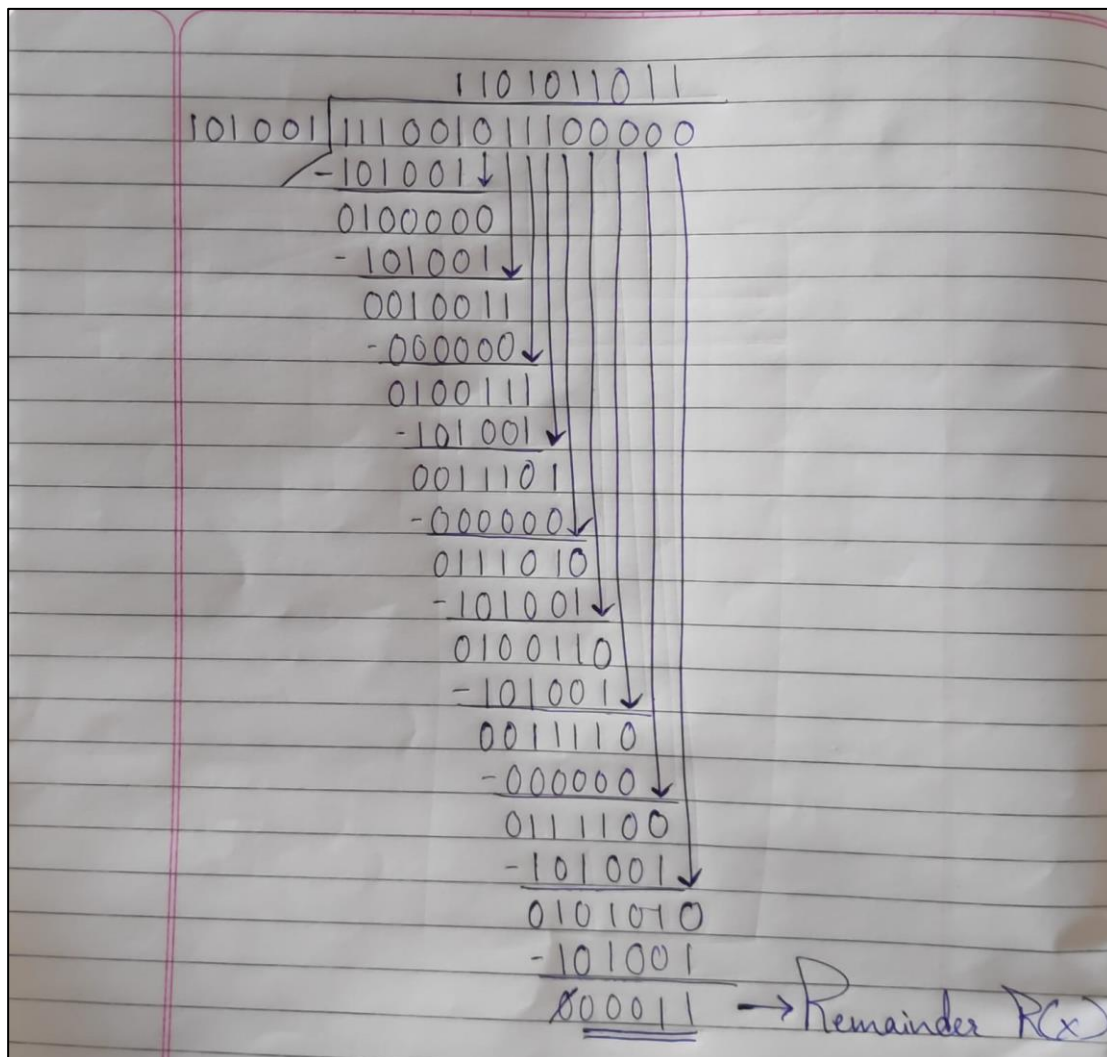 1101011011
101001 111001011100000
-101001
0100000
-101001
0010011
-000000
0100111
-101001
0011101
-000000
0111010
-101001
0100110
-101001
0011110
-000000
0111100
-101001
0101010
-101001
000011 → Remainder R(x)